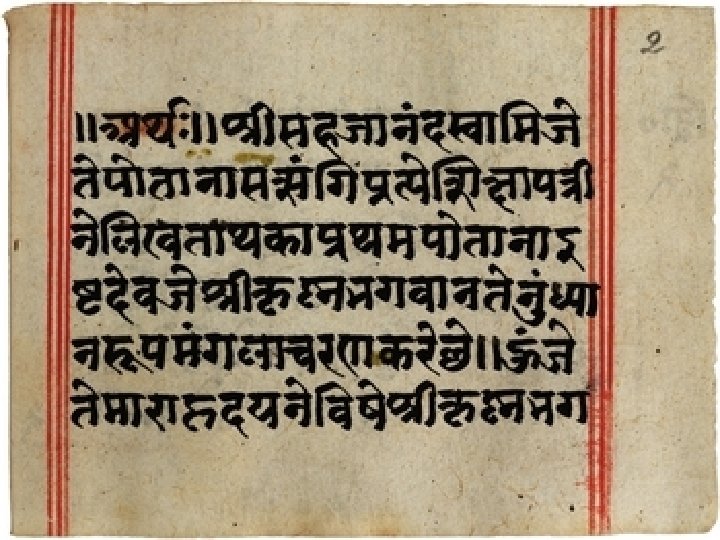 २
॥अर्थः॥ श्रीसहजानंदस्वामिजे
तेपोतानासत्संगिप्रत्येशिक्षापत्री
नेलिखताथकाप्रथमपोतानाइ
ष्टदेवजेश्रीकृष्नभगवानतेनुंध्या
नरूपमंगलाचरणकरेछे॥ऊंजे
तेमाराहृदयनेविषेश्रीकृष्नभग